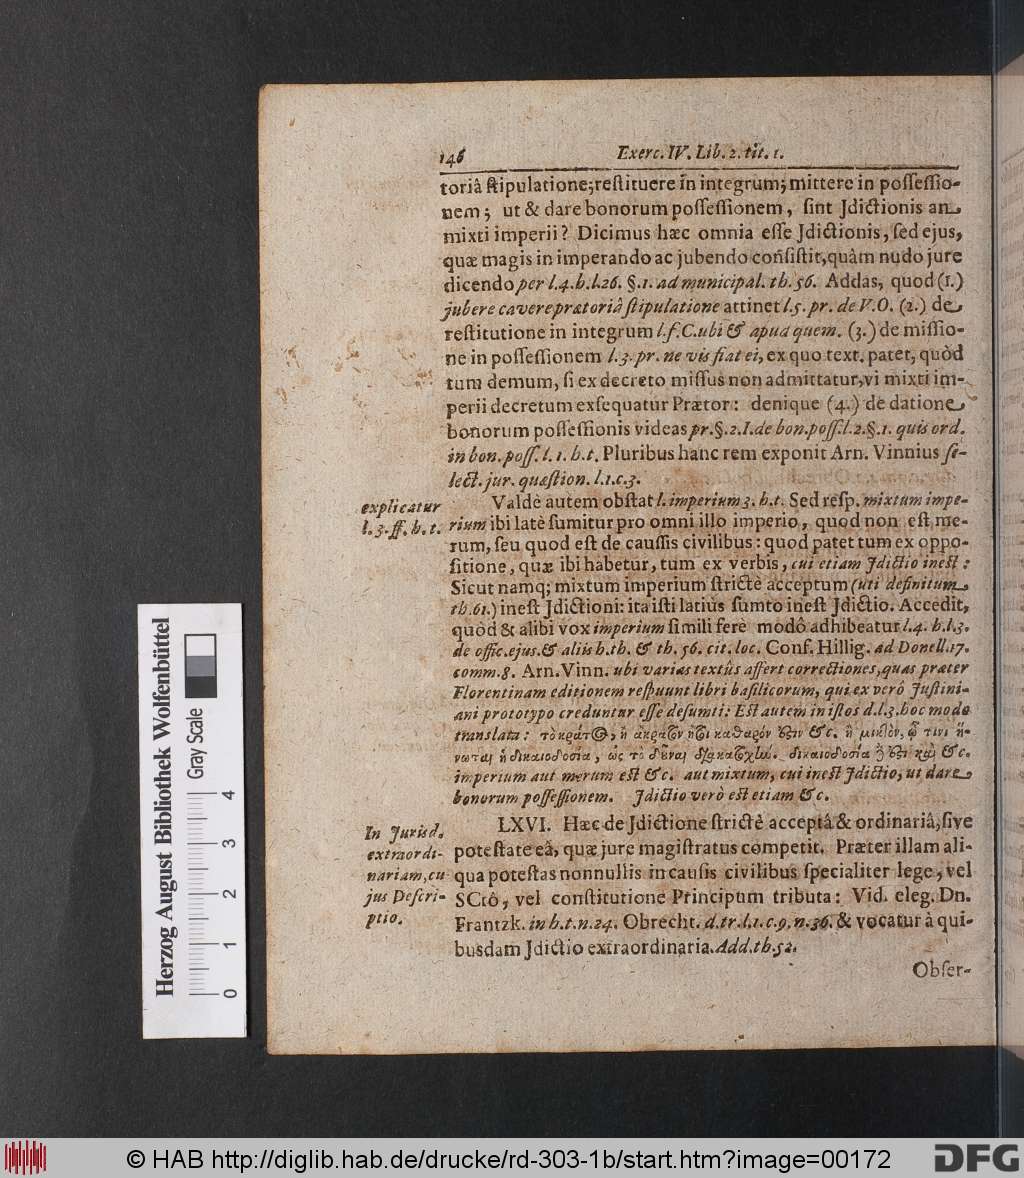 146 Exerc. IV. Lib. 2. tit. 1.
toriâ ſtipulatione; reſtituere in integrum; mittere in poſſeſſio-
nem; ut & dare bonorum poſſeſſionem, ſint Jdictionis an
mixti imperii? Dicimus hæc omnia eſſe Jdictionis, ſed ejus,
quæ magis in imperando ac jubendo conſiſtit, quàm nudo jure
dicendo per l. 4. h. l. 26. §. 1. ad municipal. th. 56. Addas, quod (1.)
jubere cavere prætoriâ ſtipulatione attinet l. 5. pr. de V. O. (2.) de
reſtitutione in integrum l. f. C. ubi & apud quem. (3.) de miſſio-
ne in poſſeſſionem l. 3. pr. ne vis fiat ei, ex quo text. patet, quòd
tum demum, ſi ex decreto miſſus non admittatur, vi mixti im-
perii decretum exſequatur Prætor: denique (4.) de datione
bonorum poſſeſſionis videas pr. §. 2. I. de bon. poſſ. l. 2. §. 1. quis ord.
in bon. poſſ. l. 1. h. t. Pluribus hanc rem exponit Arn. Vinnius ſe-
lect. jur. quæſtion. l. 1. c. 3.
explicatur
l. 3. ff. h. t.
Valdè autem obſtat l. imperium 3. h. t. Sed reſp. mixtum impe-
rium ibi latè ſumitur pro omni illo imperio, quod non eſt me-
rum, ſeu quod eſt de cauſſis civilibus: quod patet tum ex oppo-
ſitione, quæ ibi habetur, tum ex verbis, cui etiam Jdictio ineſt:
Sicut namq; mixtum imperium ſtrictè acceptum (uti definitum
th. 61.) ineſt Jdictioni: ita iſti latiùs ſumto ineſt Jdictio. Accedit,
quòd & alibi vox imperium ſimili ferè modô adhibeatur l. 4. h. l. 3.
de offic. ejus. & aliis h. th. & th. 56. cit. loc. Conf. Hillig. ad Donell. 17.
comm. 8. Arn. Vinn. ubi varias textûs affert correctiones, quas præter
Florentinam editionem reſpuunt libri baſilicorum, qui ex verò Juſtini-
ani prototypo creduntur eſſe deſumti: Eſt autem in iſtos d. l. 3. hoc modo
translata: &c.
&c.
imperium aut merum eſt &c. aut mixtum, cui ineſt Jdictio, ut dare
bonorum poſſeſſionem. Jdictio verò eſt etiam &c.
In Jurisd.
extraordi-
nariam, cu
jus Deſcri-
ptio.
LXVI. Hæc de Jdictione ſtrictè acceptâ & ordinariâ, ſive
poteſtate eâ, quæ jure magiſtratus competit. Præter illam ali-
qua poteſtas nonnullis in cauſis civilibus ſpecialiter lege, vel
SCtô, vel conſtitutione Principum tributa: Vid. eleg. Dn.
Frantzk. in h. t. n. 24. Obrecht. d. tr. l. 1. c. 9. n. 36. & vocatur à qui-
busdam Jdictio extraordinaria. Add. th. 52.
Obſer-
Herzog August Bibliothek Wolfenbüttel
Gray Scale
0 1 2 3 4
© HAB http://diglib.hab.de/drucke/rd-303-1b/start.htm?image=00172
DFG